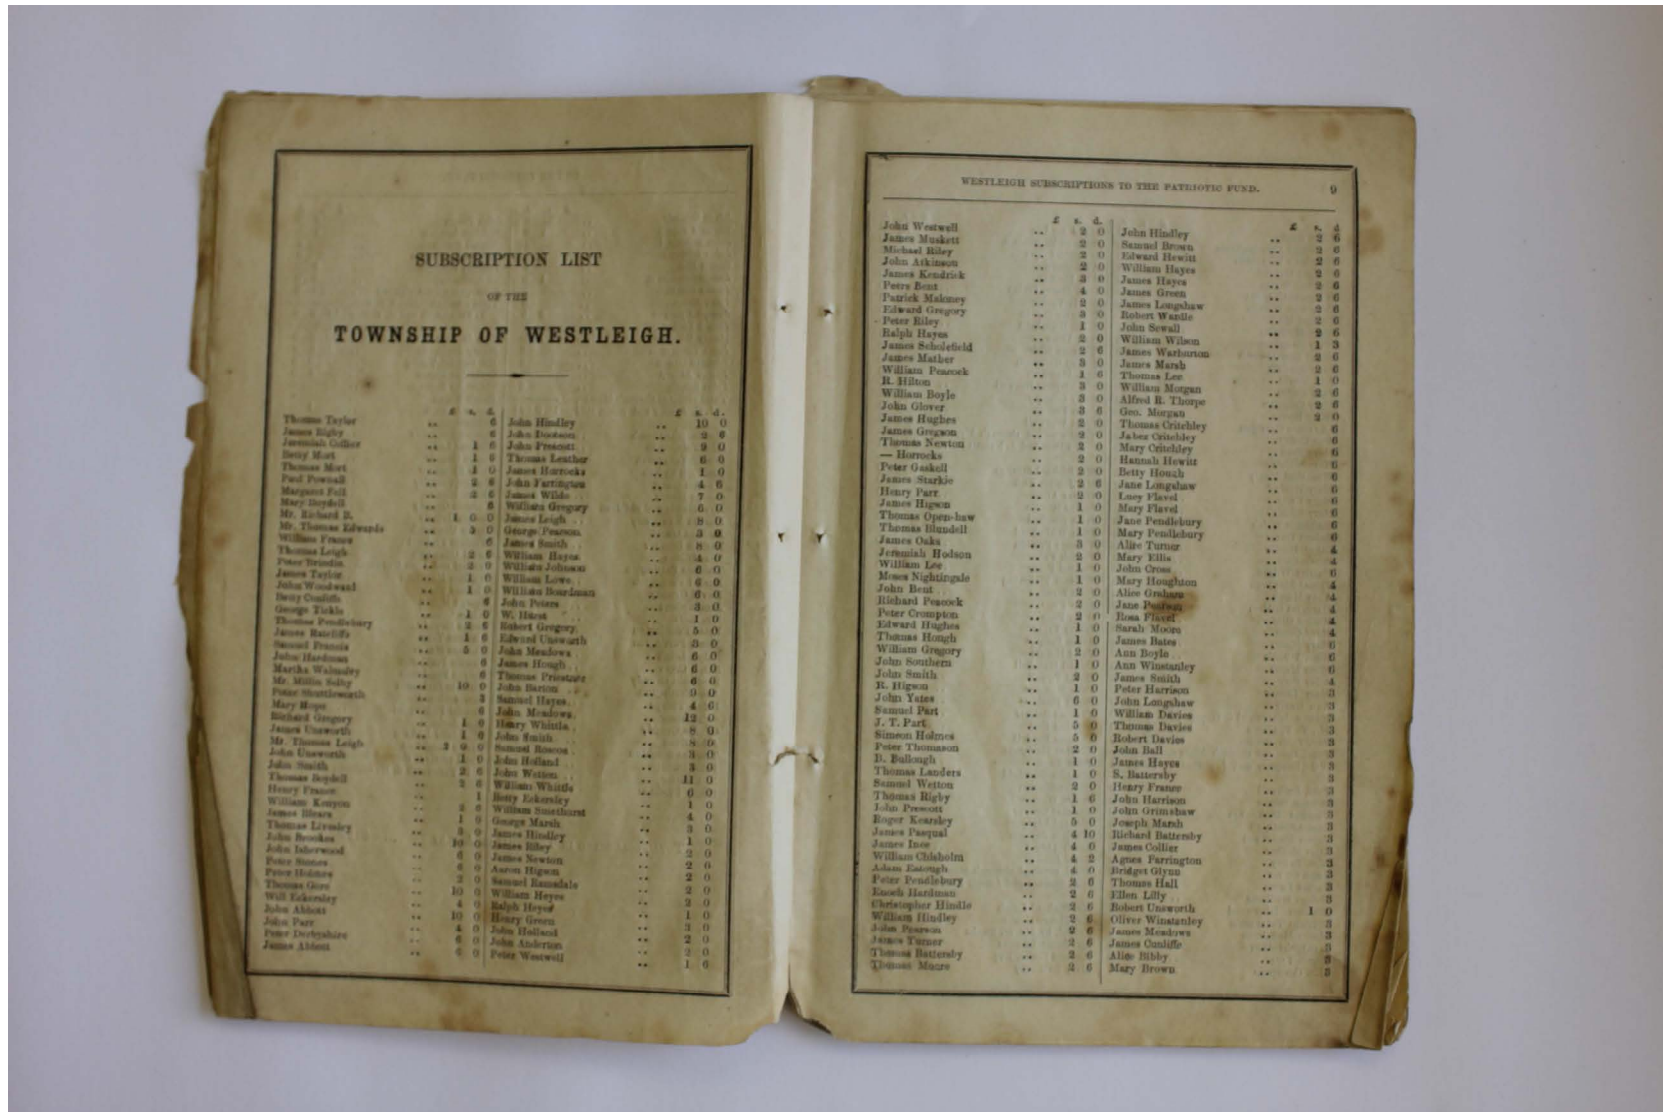 SUBSCRIPTION LIST
OF THE
TOWNSHIP OF WESTLEIGH.
£ s. d.
Thomas Taylor .. 6
James Rigby .. 6
Jeremiah Collier .. 1 6
Betty Mort .. 1 6
Thomas Mort .. 1 0
Paul Pownall .. 2 6
Margaret Fell .. 2 6
Mary Boydell 6
Mr. Richard B. .. 1 0 0
Mr. Thomas Edwards .. 0
William France 6
Thomas Leigh .. 2 6
Peter .. 2 0
James Taylor .. 1 0
John Woodward .. 1 0
Betty Cunliffe 6
George Tickle .. 1 0
Thomas Pendlebury .. 2 6
James Ratcliffe .. 1 6
Samuel Francis .. 5 0
John Hardman 6
Martha Walmsley 6
Mr. Millin Selby .. 10 0
Peter Shuttleworth
Mary Hope 6
Richard Gregory .. 1 0
James Unsworth .. 1 6
Mr. Thomas Leigh .. 0 0
John Unsworth .. 1 0
John Smith .. 2 6
Thomas Boydell .. 2 6
Henry France 1
William Kenyon .. 2 6
James Blears .. 1 0
Thomas Livesley .. 3 0
John Brookes .. 10 0
John Isherwood .. 6 0
Peter Stones .. 6 0
Peter Holmes .. 2 0
Thomas Gore .. 10 0
Will Eckersley .. 4 0
John Abbott .. 10 0
John Parr .. 4 0
Peter Derbyshire .. 6 0
James Abbott .. 6 0
£ s. d.
John Hindley .. 10 0
John Dootson .. 2 6
John Prescott .. 9 0
Thomas Leather .. 6 0
James Horrocks .. 1 0
John Farrington .. 4 6
James Wilde .. 7 0
William Gregory .. 6 0
James Leigh .. 8 0
George Pearson .. 3 0
James Smith .. 8 0
William Hayes .. 4 0
William Johnson .. 6 0
William Lowe .. 6 0
William Boardman .. 6 0
John Peters .. 3 0
W. Hurst .. 1 0
Robert Gregory .. 5 0
Edward Unsworth .. 0
John Meadows .. 6 0
James Hough .. 6 0
Thomas Priestner .. 6 0
John Barton .. 0
Samuel Hayes .. 4 6
John Meadows .. 12 0
Henry Whittle .. 8 0
John Smith .. 8 0
Samuel Roscoe .. 3 0
John Holland .. 3 0
John Wetton .. 11 0
William Whittle .. 6 0
Betty Eckersley .. 1 0
William Smethurst .. 4 0
George Marsh .. 3 0
James Hindley .. 1 0
James Riley .. 2 0
James Newton .. 2 0
Aaron Higson .. 2 0
Samuel Ramsdale .. 2 0
William Heyes .. 2 0
Ralph Heyes .. 1 0
Henry Green .. 3 0
John Holland .. 2 0
John Anderton .. 2 0
Peter Westwell .. 1 6
WESTLEIGH SUBSCRIPTIONS TO THE PATRIOTIC FUND. 9
£ s. d.
John Westwell .. 2 0
James Muskett .. 2 0
Michael Riley .. 2 0
John Atkinson .. 2 0
James Kendrick .. 3 0
Peter Bent .. 4 0
Patrick Maloney .. 2 0
Edward Gregory .. 3 0
Peter Riley .. 1 0
Ralph Hayes .. 2 0
James Scholefield .. 2 6
James Mather .. 3 0
William Peacock .. 1 6
R. Hilton .. 3 0
William Boyle .. 3 0
John Glover .. 3 6
James Hughes .. 2 0
James Gregson .. 2 0
Thomas Newton .. 2 0
— Horrocks .. 2 0
Peter Gaskell .. 2 0
James Starkie .. 2 6
Henry Parr .. 2 0
James Higson .. 1 0
Thomas Open-haw .. 1 0
Thomas Blundell .. 1 0
James Oaks .. 3 0
Jeremiah Hodson .. 2 0
William Lee .. 1 0
Moses Nightingale .. 1 0
John Bent .. 2 0
Richard Peacock .. 2 0
Peter Crompton .. 2 0
Edward Hughes .. 1 0
Thomas Hough .. 1 0
William Gregory .. 2 0
John Southern .. 1 0
John Smith .. 2 0
R. Higson .. 1 0
John Yates .. 6 0
Samuel Part .. 1 0
J. T. Part .. 5 0
Simeon Holmes .. 5 0
Peter Thomason .. 2 0
D. Bullough .. 1 0
Thomas Landers .. 1 0
Samuel Wetton .. 2 0
Thomas Rigby .. 1 6
John Prescott .. 1 0
Roger Kearsley .. 5 0
James Pasqual .. 4 10
James Ince .. 4 0
William Chisholm .. 4 2
Adam Eatough .. 4 0
Peter Pendlebury .. 2 6
Enoch Hardman .. 2 6
Christopher Hindle .. 2 6
William Hindley .. 2 6
John Pearson .. 2 6
James Turner .. 2 6
Thomas Battersby .. 2 6
Thomas Moore .. 2 6
£ s. d
John Hindley .. 2 6
Samuel Brown .. 2 6
Edward Hewitt .. 2 6
William Hayes .. 2 6
James Hayes .. 2 6
James Green .. 2 6
James Longshaw .. 2 6
Robert Wardle .. 2 6
John Sewall .. 2 6
William Wilson .. 1 3
James Warburton .. 2 6
James Marsh .. 2 6
Thomas Lee .. 1 0
William Morgan .. 2 6
Alfred R. Thorpe .. 2 6
Geo. Morgan .. 2 0
Thomas Critchley 6
Jabez Critchley 6
Mary Critchley 6
Hannah Hewitt 6
Betty Hough 6
Jane Longshaw 6
Lucy Flavel 6
Mary Flavel 6
Jane Pendlebury 6
Mary Pendlebury 6
Alice Turner 4
Mary Ellis 4
John Cross 6
Mary Houghton 4
Alice Graham 4
Jane 4
Rosa Flavel 4
Sarah Moors 4
James Bates 6
Ann Boyle 6
Ann Winstanley 6
James Smith 4
Peter Harrison 3
John Longshaw 3
William Davies 3
Thomas Davies 3
Robert Davies 3
John Ball 3
James Hayes 3
S. Battersby 3
Henry France 3
John Harrison 3
John Grimshaw 3
Joseph Marsh 3
Richard Battersby 3
James Collier 3
Agnes Farrington 3
Bridget Glynn 3
Thomas Hall 3
Ellen Lilly 3
Robert Unsworth .. 1 0
Oliver Winstanley 3
James Meadows 3
James Cunliffe 3
Alice Bibby 3
Mary Brown 3